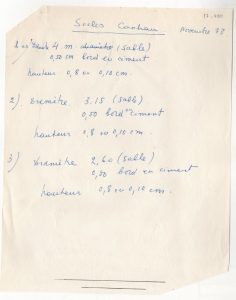 Socles
Novembre 77
4 m (sable)
0,50 cm bord en ciment
hauteur 0,8 ou 0,10 cm.
2). Diamètre 3.15 (sable)
0,50 bord en ciment
hauteur 0,8 ou 0,10 cm.
3) Diamètre 2,60 (sable)
0,50 bord en ciment
hauteur 0,8 ou 0,10 cm.